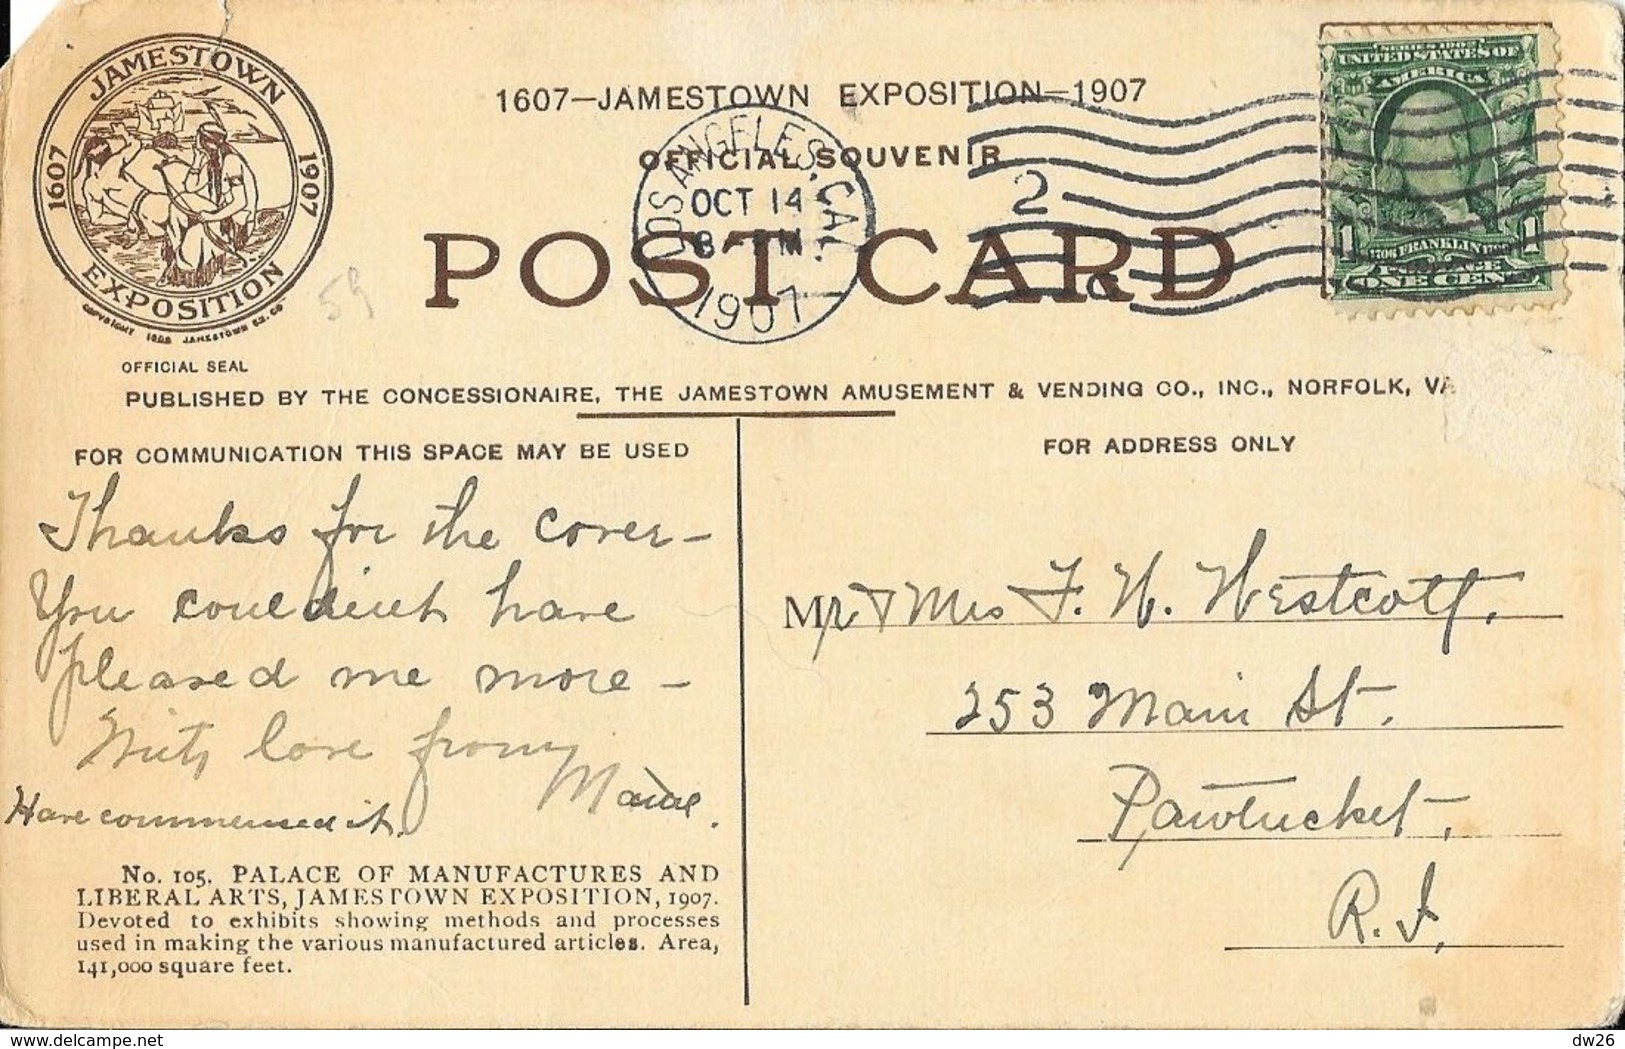 JAMESTOWN
1607 1907
EXPOSITION
COPYRIGHT 1906 JAMESTOWN EX. CO
OFFICIAL SEAL
1607—JAMESTOWN EXPOSITION—1907
OFFICIAL SOUVENIR
POST CARD
LOS ANGELES, CAL.
OCT 14
8 M
1907
2
SERIES 1902
UNITED STATES OF
AMERICA
1 1
1706 FRANKLIN 1790
POSTAGE
ONE CENT
59
PUBLISHED BY THE CONCESSIONAIRE, THE JAMESTOWN AMUSEMENT & VENDING CO., INC., NORFOLK, VA
FOR COMMUNICATION THIS SPACE MAY BE USED
FOR ADDRESS ONLY
Thanks for the cover—
You couldn't have
pleased me more—
With love from
Have commenced it.
Mr & Mrs F. W. Westcott,
253 Main St.
Pawtucket,
R.I.
No. 105. PALACE OF MANUFACTURES AND
LIBERAL ARTS, JAMESTOWN EXPOSITION, 1907.
Devoted to exhibits showing methods and processes
used in making the various manufactured articles. Area,
141,000 square feet.
delcampe.net
dw26